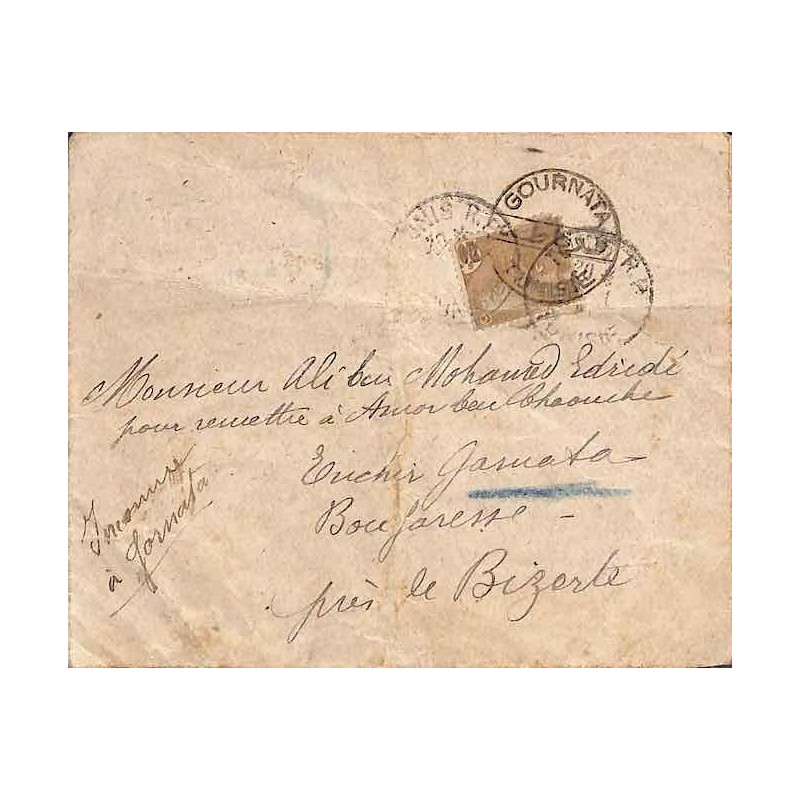 GOURNATA
TUNISIE
20
Monsieur Ali ben Mohamed Edridé
pour remettre à Amor ben Chaouche
Enchir Garnata
Boujaresse -
près de Bizerte
Inconnu
à Gornata